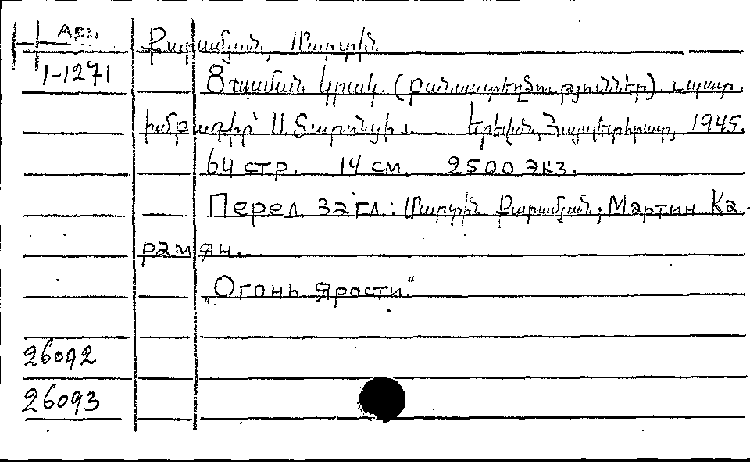 Арм.
Քարամյան, Մարտին
1-1271
Ցասման կրակ. (բանաստեղծություններ) պատ.
խմբագիր՝ Ս. Տարոնցի. Երեվան, Հայպետհրատ, 1945.
64 стр. 14 см. 2500 экз.
Перед загл.: Մարտին Քարամյան; Мартин Ка-
рамян.
„Огонь ярости"
26092
26093